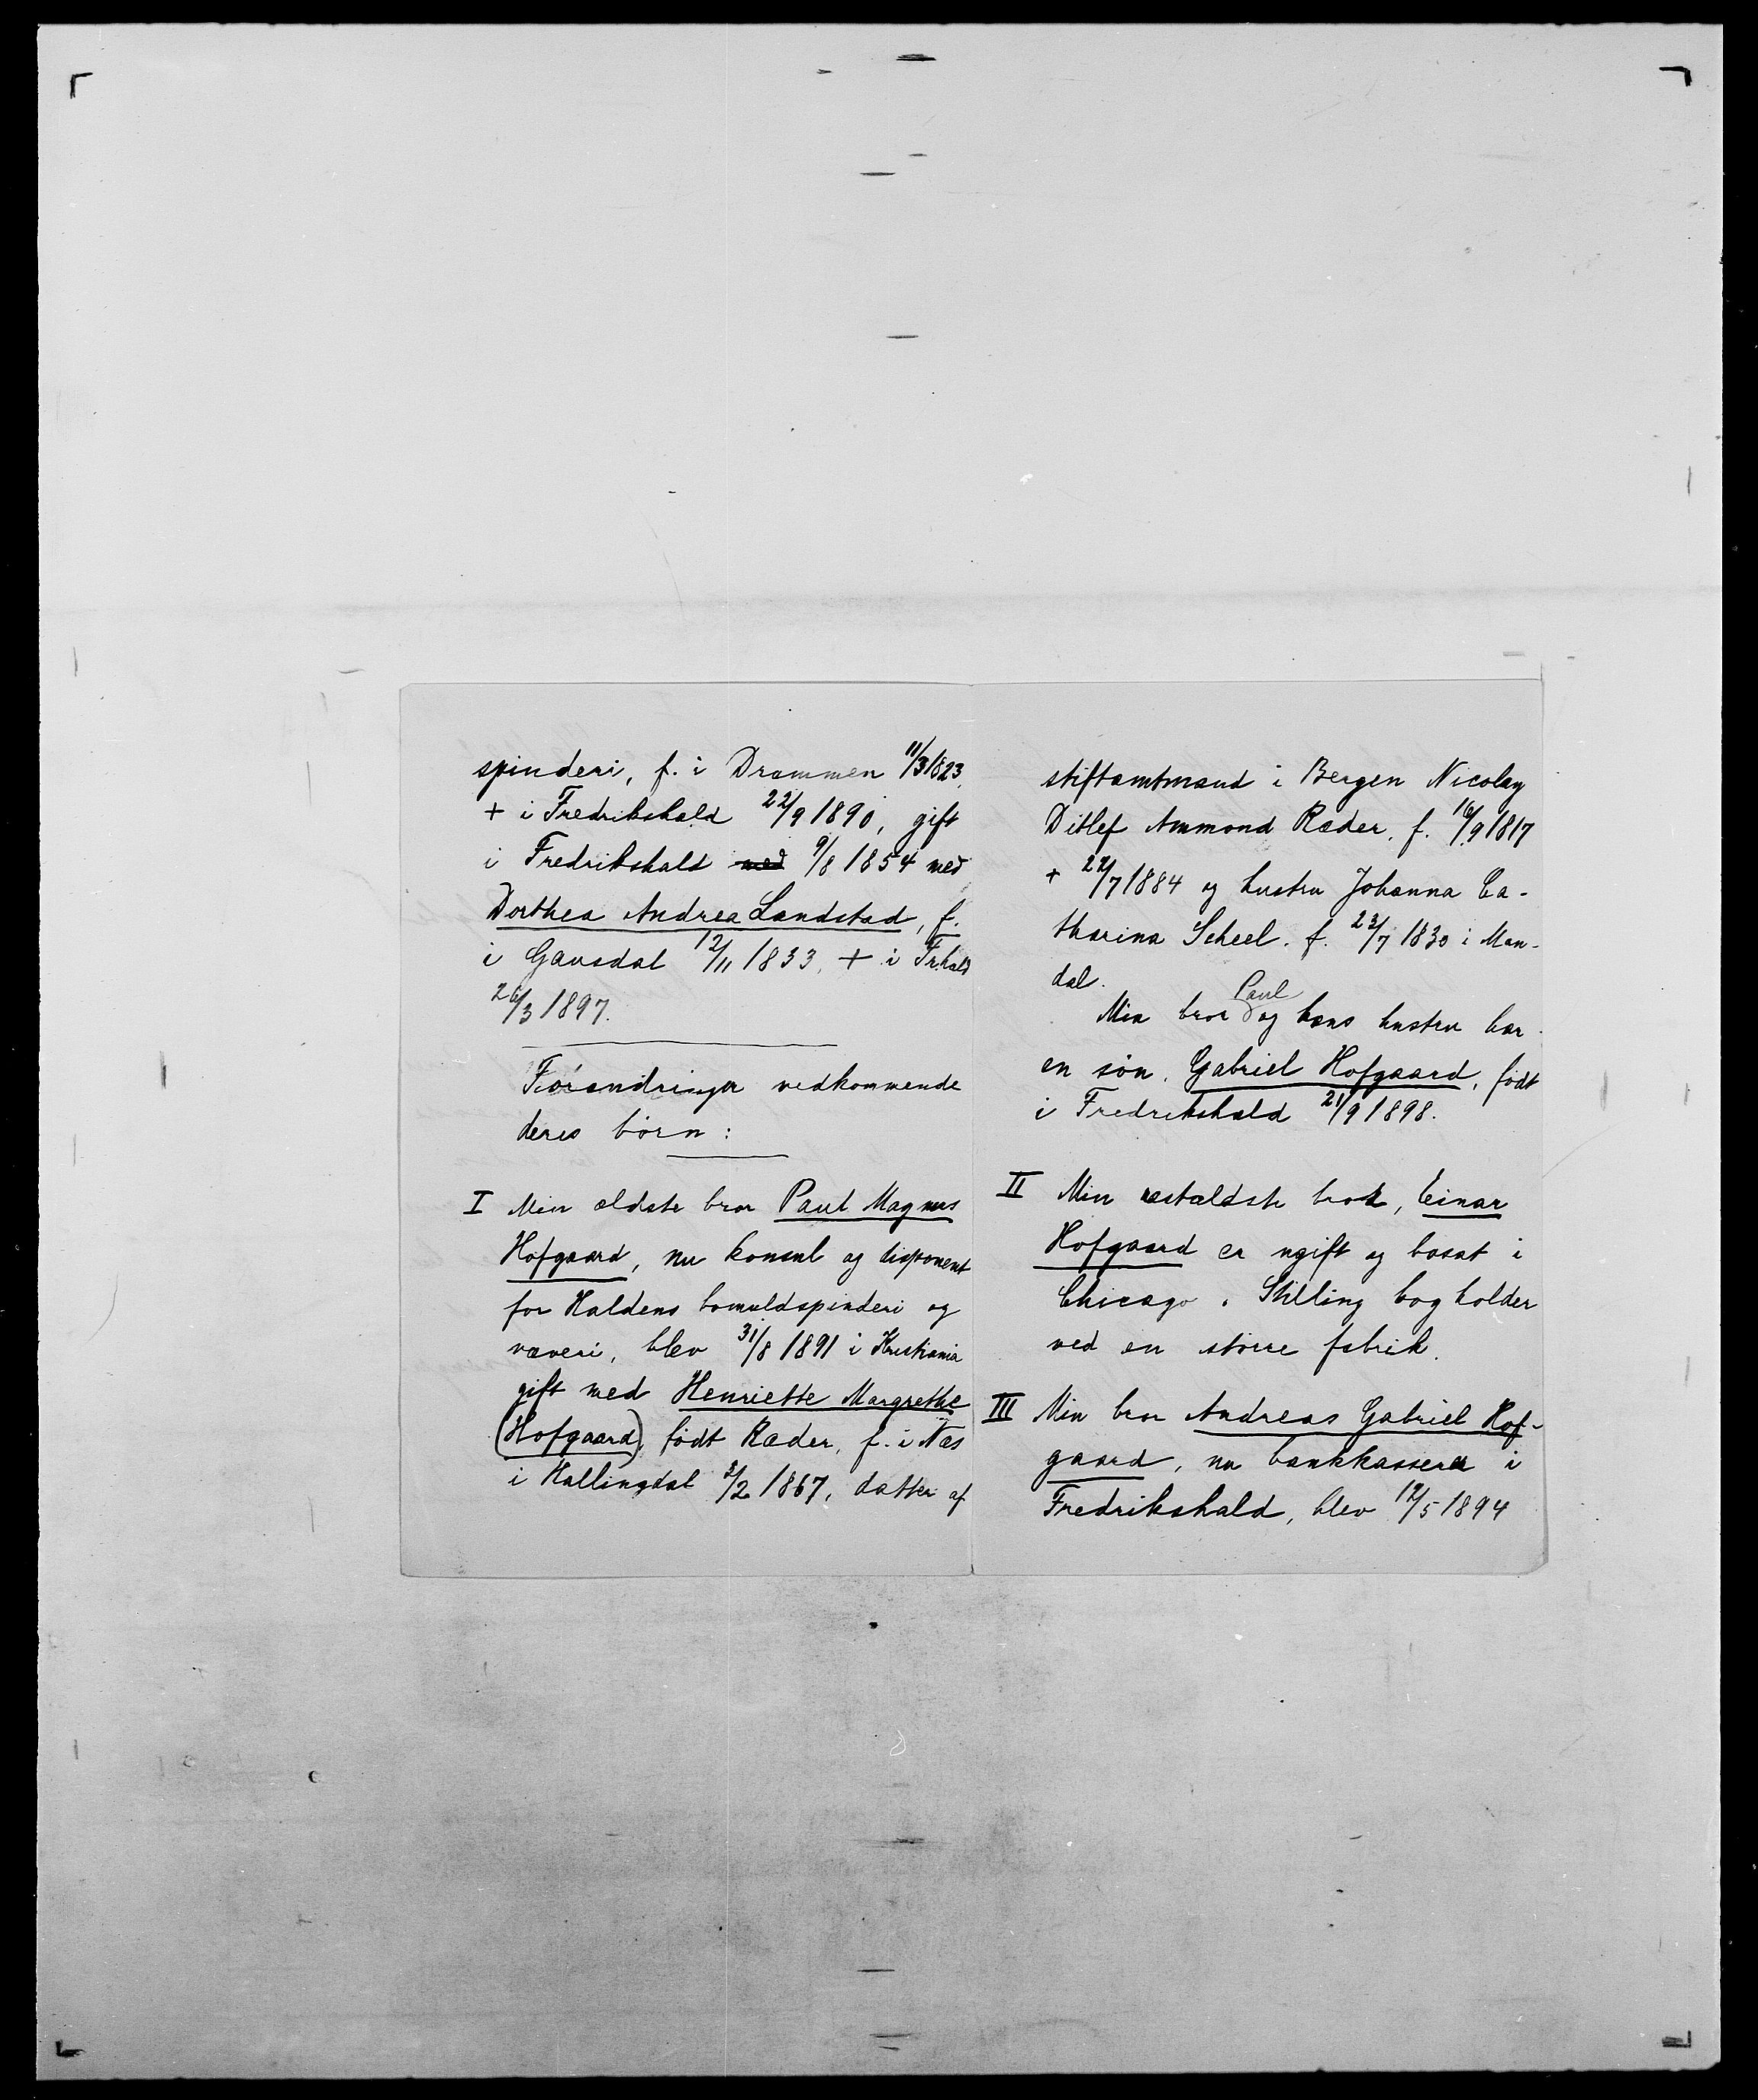 spinderi, f. i Drammen 11/3 1823.
+ i Fredrikshald 22/9 1890, gift
i Fredrikshald med 9/8 1854 med
Dorthea Andrea Landstad, f.
i Gausdal 12/11 1833, + i Frhald
26/3 1897.
Forandringer vedkommende
deres börn:
I Min ældste bror Paul Magnus
Hofgaard, nu konsul og disponent
for Haldens bomuldspinderi og
væveri, blev 31/8 1891 i Kristiania
gift med Henriette Margrethe
(Hofgaard), födt Ræder, f. i Næs
i Hallingdal 3/2 1867, datter af
stiftamtmand i Bergen Nicolay
Ditlef Ammond Ræder, f. 16/9 1817
+ 22/7 1884 og hustru Johanna Ca-
tharina Scheel. f. 23/7 1830 i Man-
dal.
Min bror Paul og hans hustru har
en sön, Gabriel Hofgaard, födt
i Fredrikshald 21/9 1898.
II Min næstældste bror, Einar
Hofgaard er ugift og bosat i
Chicago. Stilling bogholder
ved en större fabrik.
III Min bror Andreas Gabriel Hof-
gaard, nu bankkasserer i
Fredrikshald, blev 12/5 1894